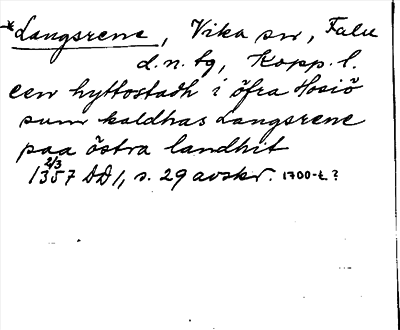 *Langsrene, Vika sn, Falu
d.n. bg, Kopp. l.
een hyttostadh i öfra Hosiö
sum kaldhas Langsrene
paa östra landhit
2/3
1357 DD 1, s. 29 avskr. 1700-t.?